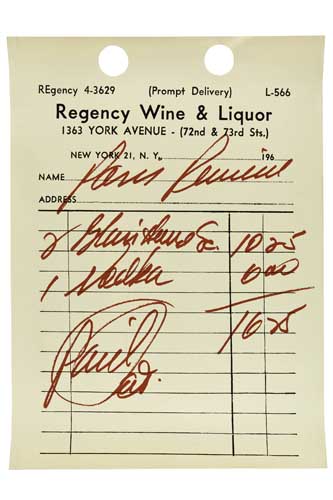 REgency 4-3629 (Prompt Delivery) L-566
Regency Wine & Liquor
1363 YORK AVENUE - (72nd & 73rd Sts.)
NEW YORK 21, N. Y., 196
NAME Paris Review
ADDRESS
2 10 25
1 Vodka 6 00
16 25
Paid